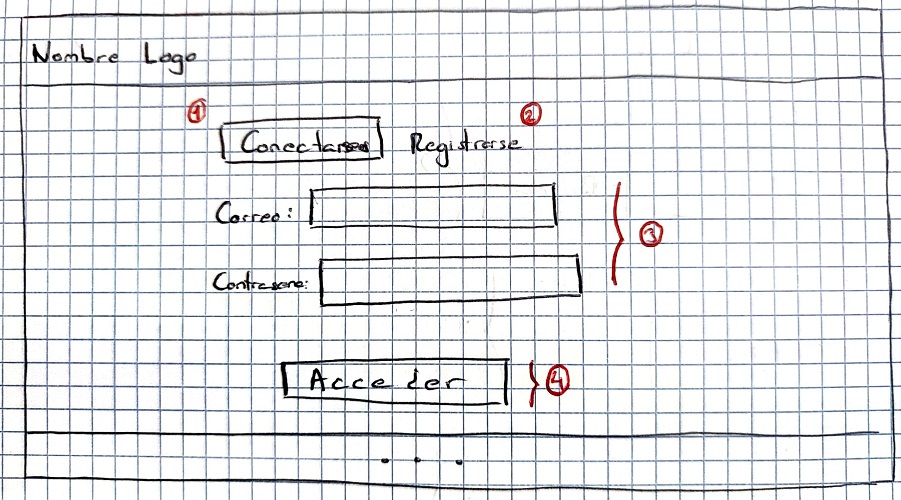 Nombre Logo
1 Conectarse Registrarse 2
Correo:
3
Contrasena:
Acceder 4
...